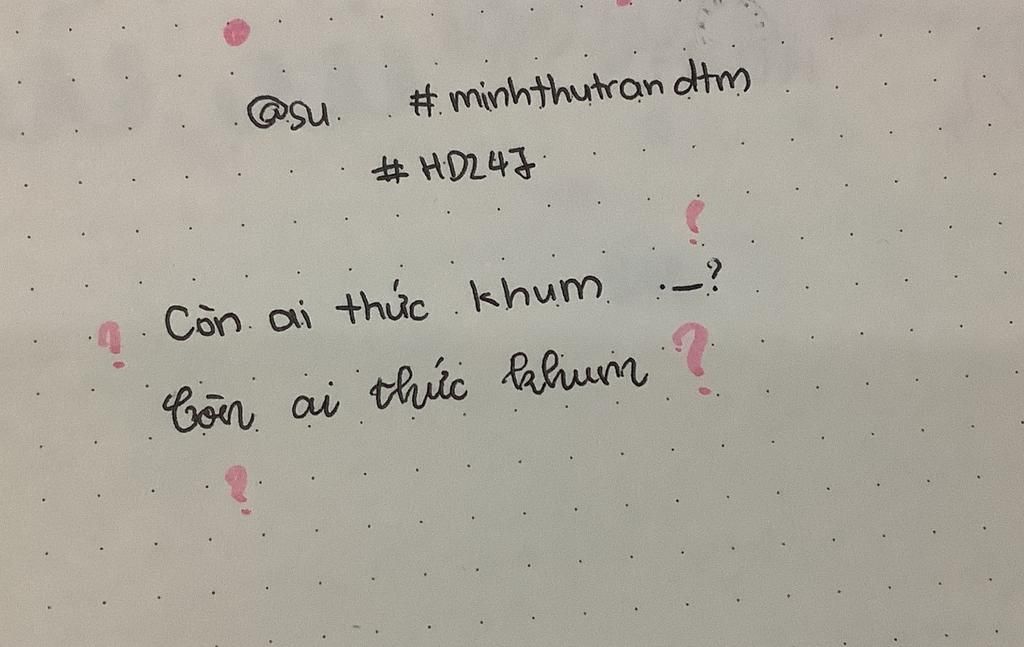 @su. #minhthutrandtm
#HD247
Còn ai thức khum ._?
Còn ai thức khum ?